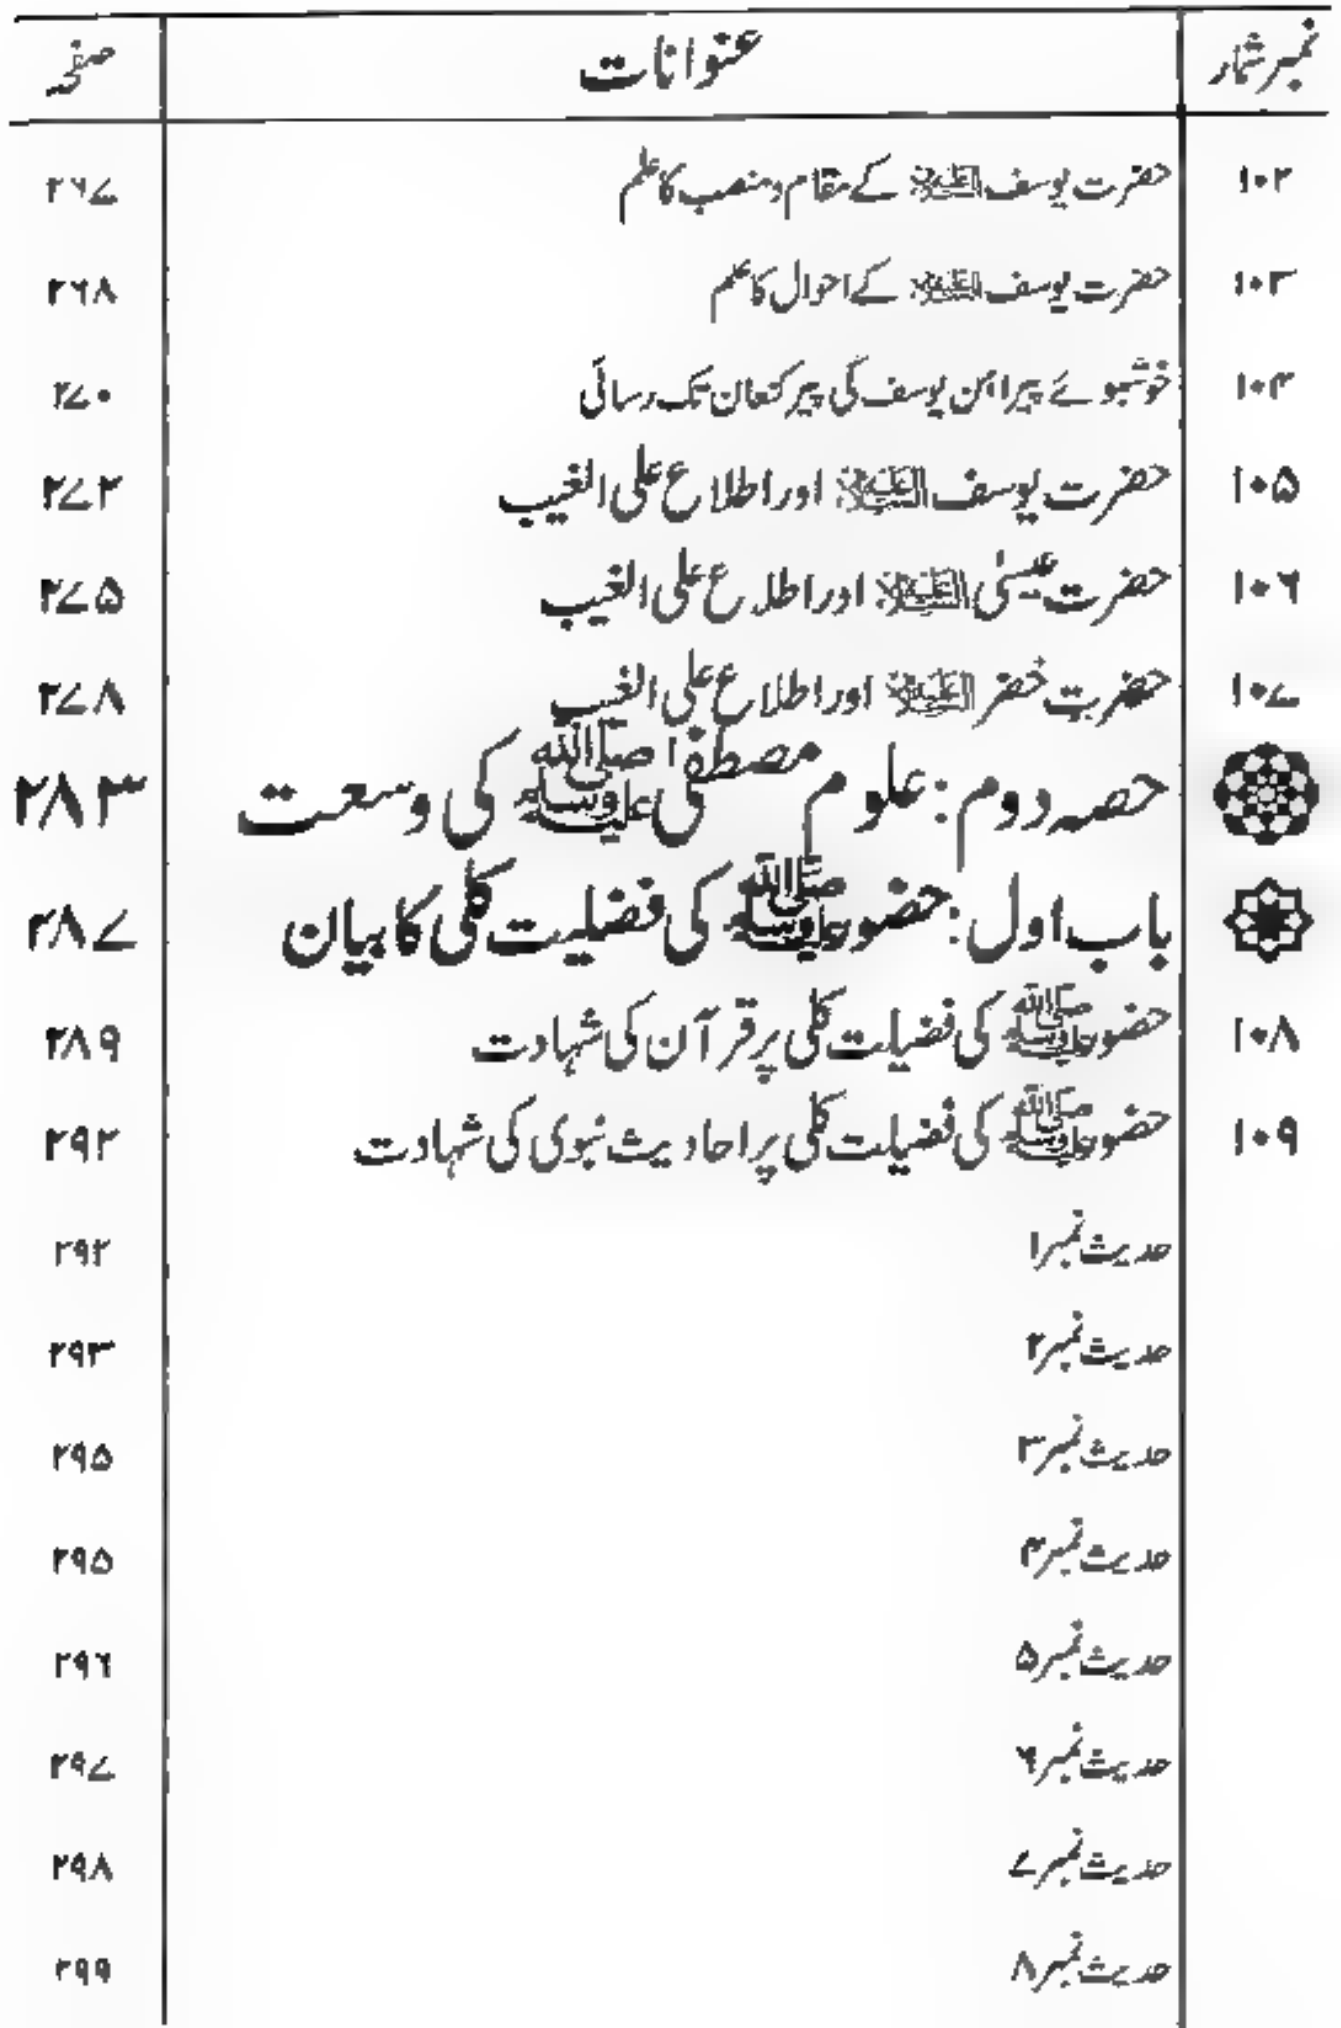 نمبر شمار عنوانات صفحہ
۱۰۲ حضرت یوسف علیہ السلام کے مقام ومنصب کا علم ۲۶۷
۱۰۳ حضرت یوسف علیہ السلام کے احوال کا علم ۲۶۸
۱۰۴ خوشبوئے پیراہن یوسف کی پیر کنعان تک رسائی ۲۷۰
۱۰۵ حضرت یوسف علیہ السلام اور اطلاع علی الغیب ۲۷۲
۱۰۶ حضرت عیسیٰ علیہ السلام اور اطلاع علی الغیب ۲۷۵
۱۰۷ حضرت خضر علیہ السلام اور اطلاع علی الغیب ۲۷۸
حصہ دوم: علوم مصطفیٰ ﷺ کی وسعت ۲۸۳
باب اول: حضور ﷺ کی فضیلت کلی کا بیان ۲۸۷
۱۰۸ حضور ﷺ کی فضیلت کلی پر قرآن کی شہادت ۲۸۹
۱۰۹ حضور ﷺ کی فضیلت کلی پر احادیث نبوی کی شہادت ۲۹۲
حدیث نمبر۱ ۲۹۲
حدیث نمبر۲ ۲۹۳
حدیث نمبر۳ ۲۹۵
حدیث نمبر۴ ۲۹۵
حدیث نمبر۵ ۲۹۶
حدیث نمبر۶ ۲۹۷
حدیث نمبر۷ ۲۹۸
حدیث نمبر۸ ۲۹۹